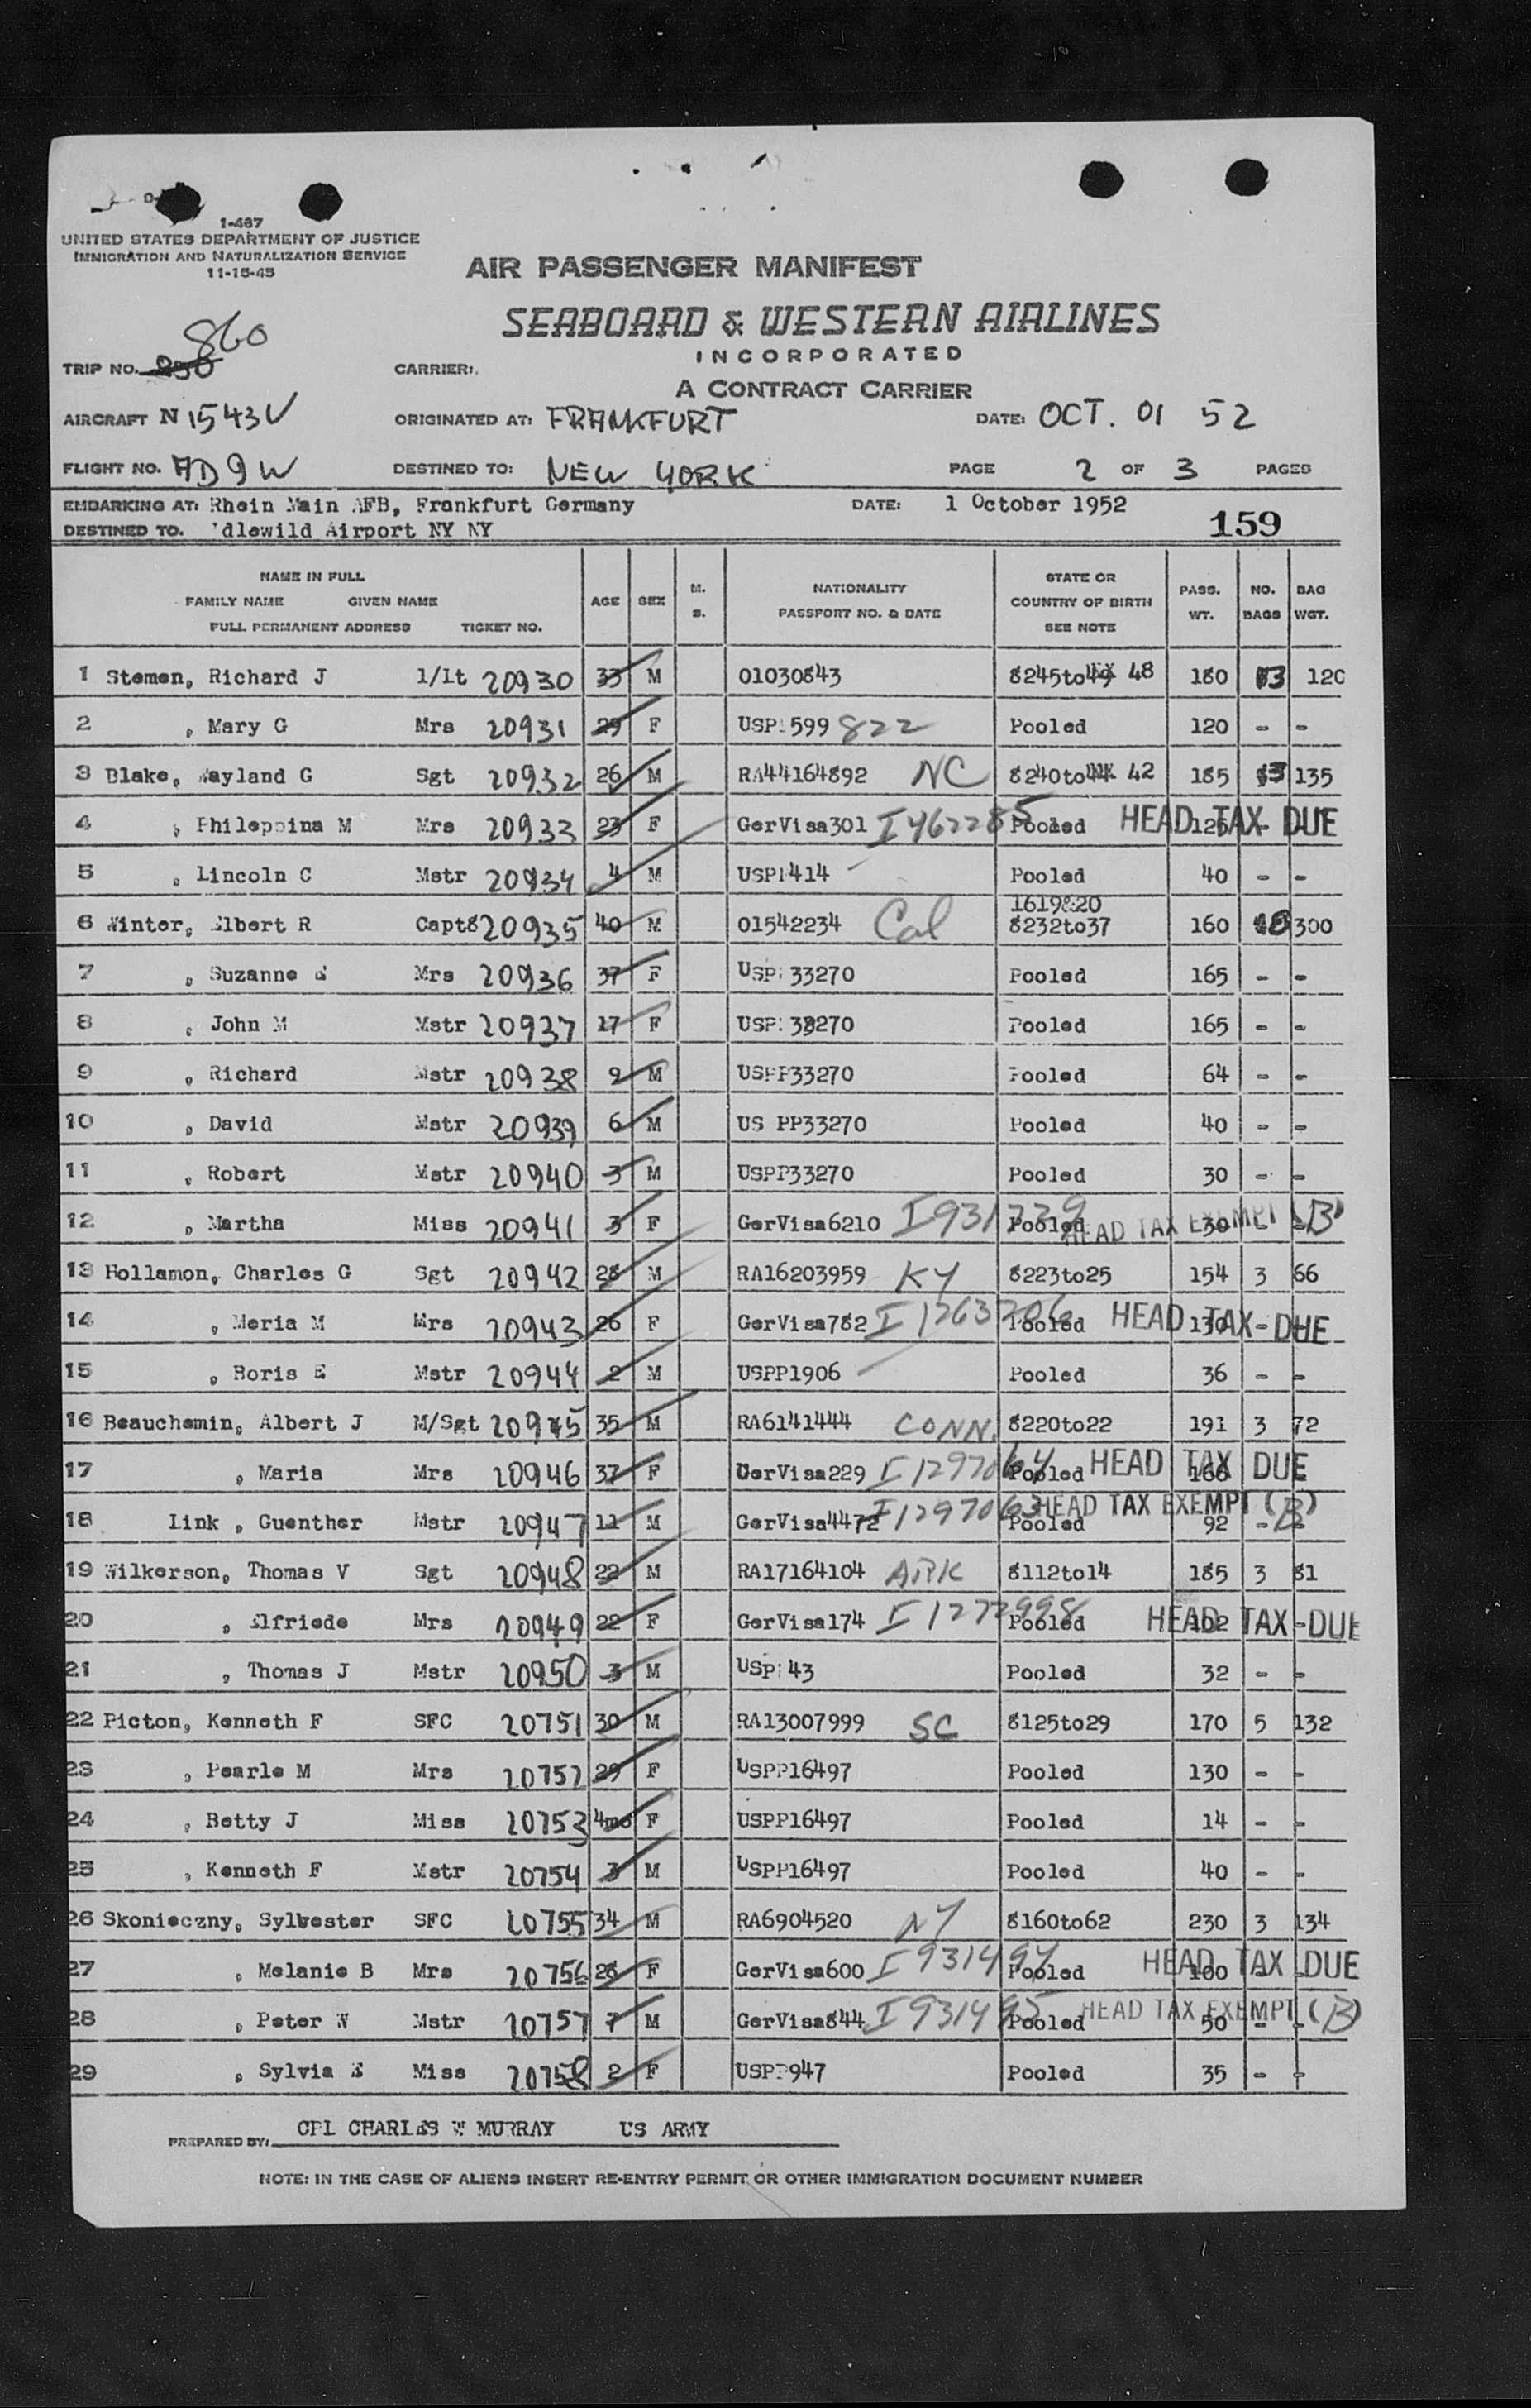 1-467
UNITED STATES DEPARTMENT OF JUSTICE
IMMIGRATION AND NATURALIZATION SERVICE
11-15-45
AIR PASSENGER MANIFEST
SEABOARD & WESTERN AIRLINES
INCORPORATED
A CONTRACT CARRIER
860
TRIP NO. 250 CARRIER:
AIRCRAFT N 1543V ORIGINATED AT: FRANKFURT DATE: OCT. 01 52
FLIGHT NO. AD9W DESTINED TO: NEW YORK PAGE 2 OF 3 PAGES
EMBARKING AT: Rhein Main AFB, Frankfurt Germany DATE: 1 October 1952
DESTINED TO. Idlewild Airport NY NY 159
NAME IN FULL
FAMILY NAME GIVEN NAME
FULL PERMANENT ADDRESS TICKET NO. AGE SEX M. S. NATIONALITY PASSPORT NO. & DATE STATE OR COUNTRY OF BIRTH SEE NOTE PASS. WT. NO. BAGS BAG WGT.
1 Stemen, Richard J 1/Lt 20930 33 M 01030843 8245to49 48 180 3 120
2 , Mary G Mrs 20931 29 F USPP599 822 Pooled 120 - -
3 Blake, Wayland G Sgt 20932 26 M RA44164892 NC 8240to44 42 185 3 135
4 , Phileppina M Mrs 20933 23 F GerVisa301 I462285 Pooled 125 - - HEAD TAX DUE
5 , Lincoln C Mstr 20934 4 M USPP414 Pooled 40 - -
6 Winter, Elbert R Capt8 20935 40 M 01542234 Cal 1619&20 8232to37 160 300
7 , Suzanne E Mrs 20936 37 F USPP33270 Pooled 165 - -
8 , John M Mstr 20937 17 F USPP33270 Pooled 165 - -
9 , Richard Mstr 20938 9 M USPP33270 Pooled 64 - -
10 , David Mstr 20939 6 M US PP33270 Pooled 40 - -
11 , Robert Mstr 20940 3 M USPP33270 Pooled 30 - -
12 , Martha Miss 20941 3 F GerVisa6210 I931739 Pooled 30 - - HEAD TAX EXEMPT (B)
13 Hollamon, Charles G Sgt 20942 28 M RA16203959 KY 8223to25 154 3 66
14 , Meria M Mrs 20943 26 F GerVisa782 I1263706 Pooled 130 - - HEAD TAX DUE
15 , Boris E Mstr 20944 2 M USPP1906 Pooled 36 - -
16 Beauchemin, Albert J M/Sgt 20945 35 M RA6141444 CONN. 8220to22 191 3 72
17 , Maria Mrs 20946 37 F GerVisa229 I1297064 Pooled 166 HEAD TAX DUE
18 Link , Guenther Mstr 20947 11 M GerVisa4472 I1297063 Pooled 92 - - HEAD TAX EXEMPT (B)
19 Wilkerson, Thomas V Sgt 20948 22 M RA17164104 ARK 8112to14 185 3 81
20 , Elfriede Mrs 20949 22 F GerVisa174 I1272998 Pooled 102 - HEAD TAX DUE
21 , Thomas J Mstr 20950 3 M USPP43 Pooled 32 - -
22 Picton, Kenneth F SFC 20751 30 M RA13007999 SC 8125to29 170 5 132
23 , Pearle M Mrs 20752 29 F USPP16497 Pooled 130 - -
24 , Betty J Miss 20753 4mo F USPP16497 Pooled 14 - -
25 , Kenneth F Mstr 20754 3 M USPP16497 Pooled 40 - -
26 Skonieczny, Sylvester SFC 20755 34 M RA6904520 NY 8160to62 230 3 134
27 , Melanie B Mrs 20756 28 F GerVisa600 I931494 Pooled 100 HEAD TAX DUE
28 , Peter W Mstr 20757 7 M GerVisa844 I931495 Pooled 50 - - HEAD TAX EXEMPT (B)
29 , Sylvia E Miss 20758 2 F USPP947 Pooled 35 - -
PREPARED BY: CPL CHARLES W MURRAY US ARMY
NOTE: IN THE CASE OF ALIENS INSERT RE-ENTRY PERMIT OR OTHER IMMIGRATION DOCUMENT NUMBER